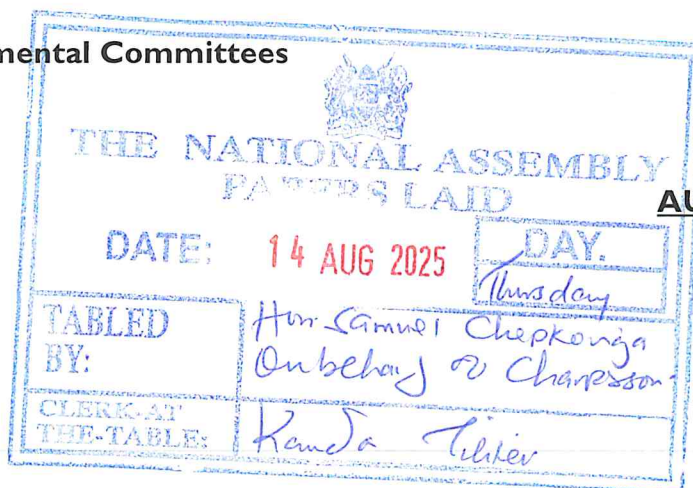 mental Committees
THE NATIONAL ASSEMBLY
PAPERS LAID
AU
DATE: 14 AUG 2025 DAY.
Thursday
TABLED BY: Hon. Samuel Chepkonga
On behalf of Chairperson
CLERK-AT THE-TABLE: